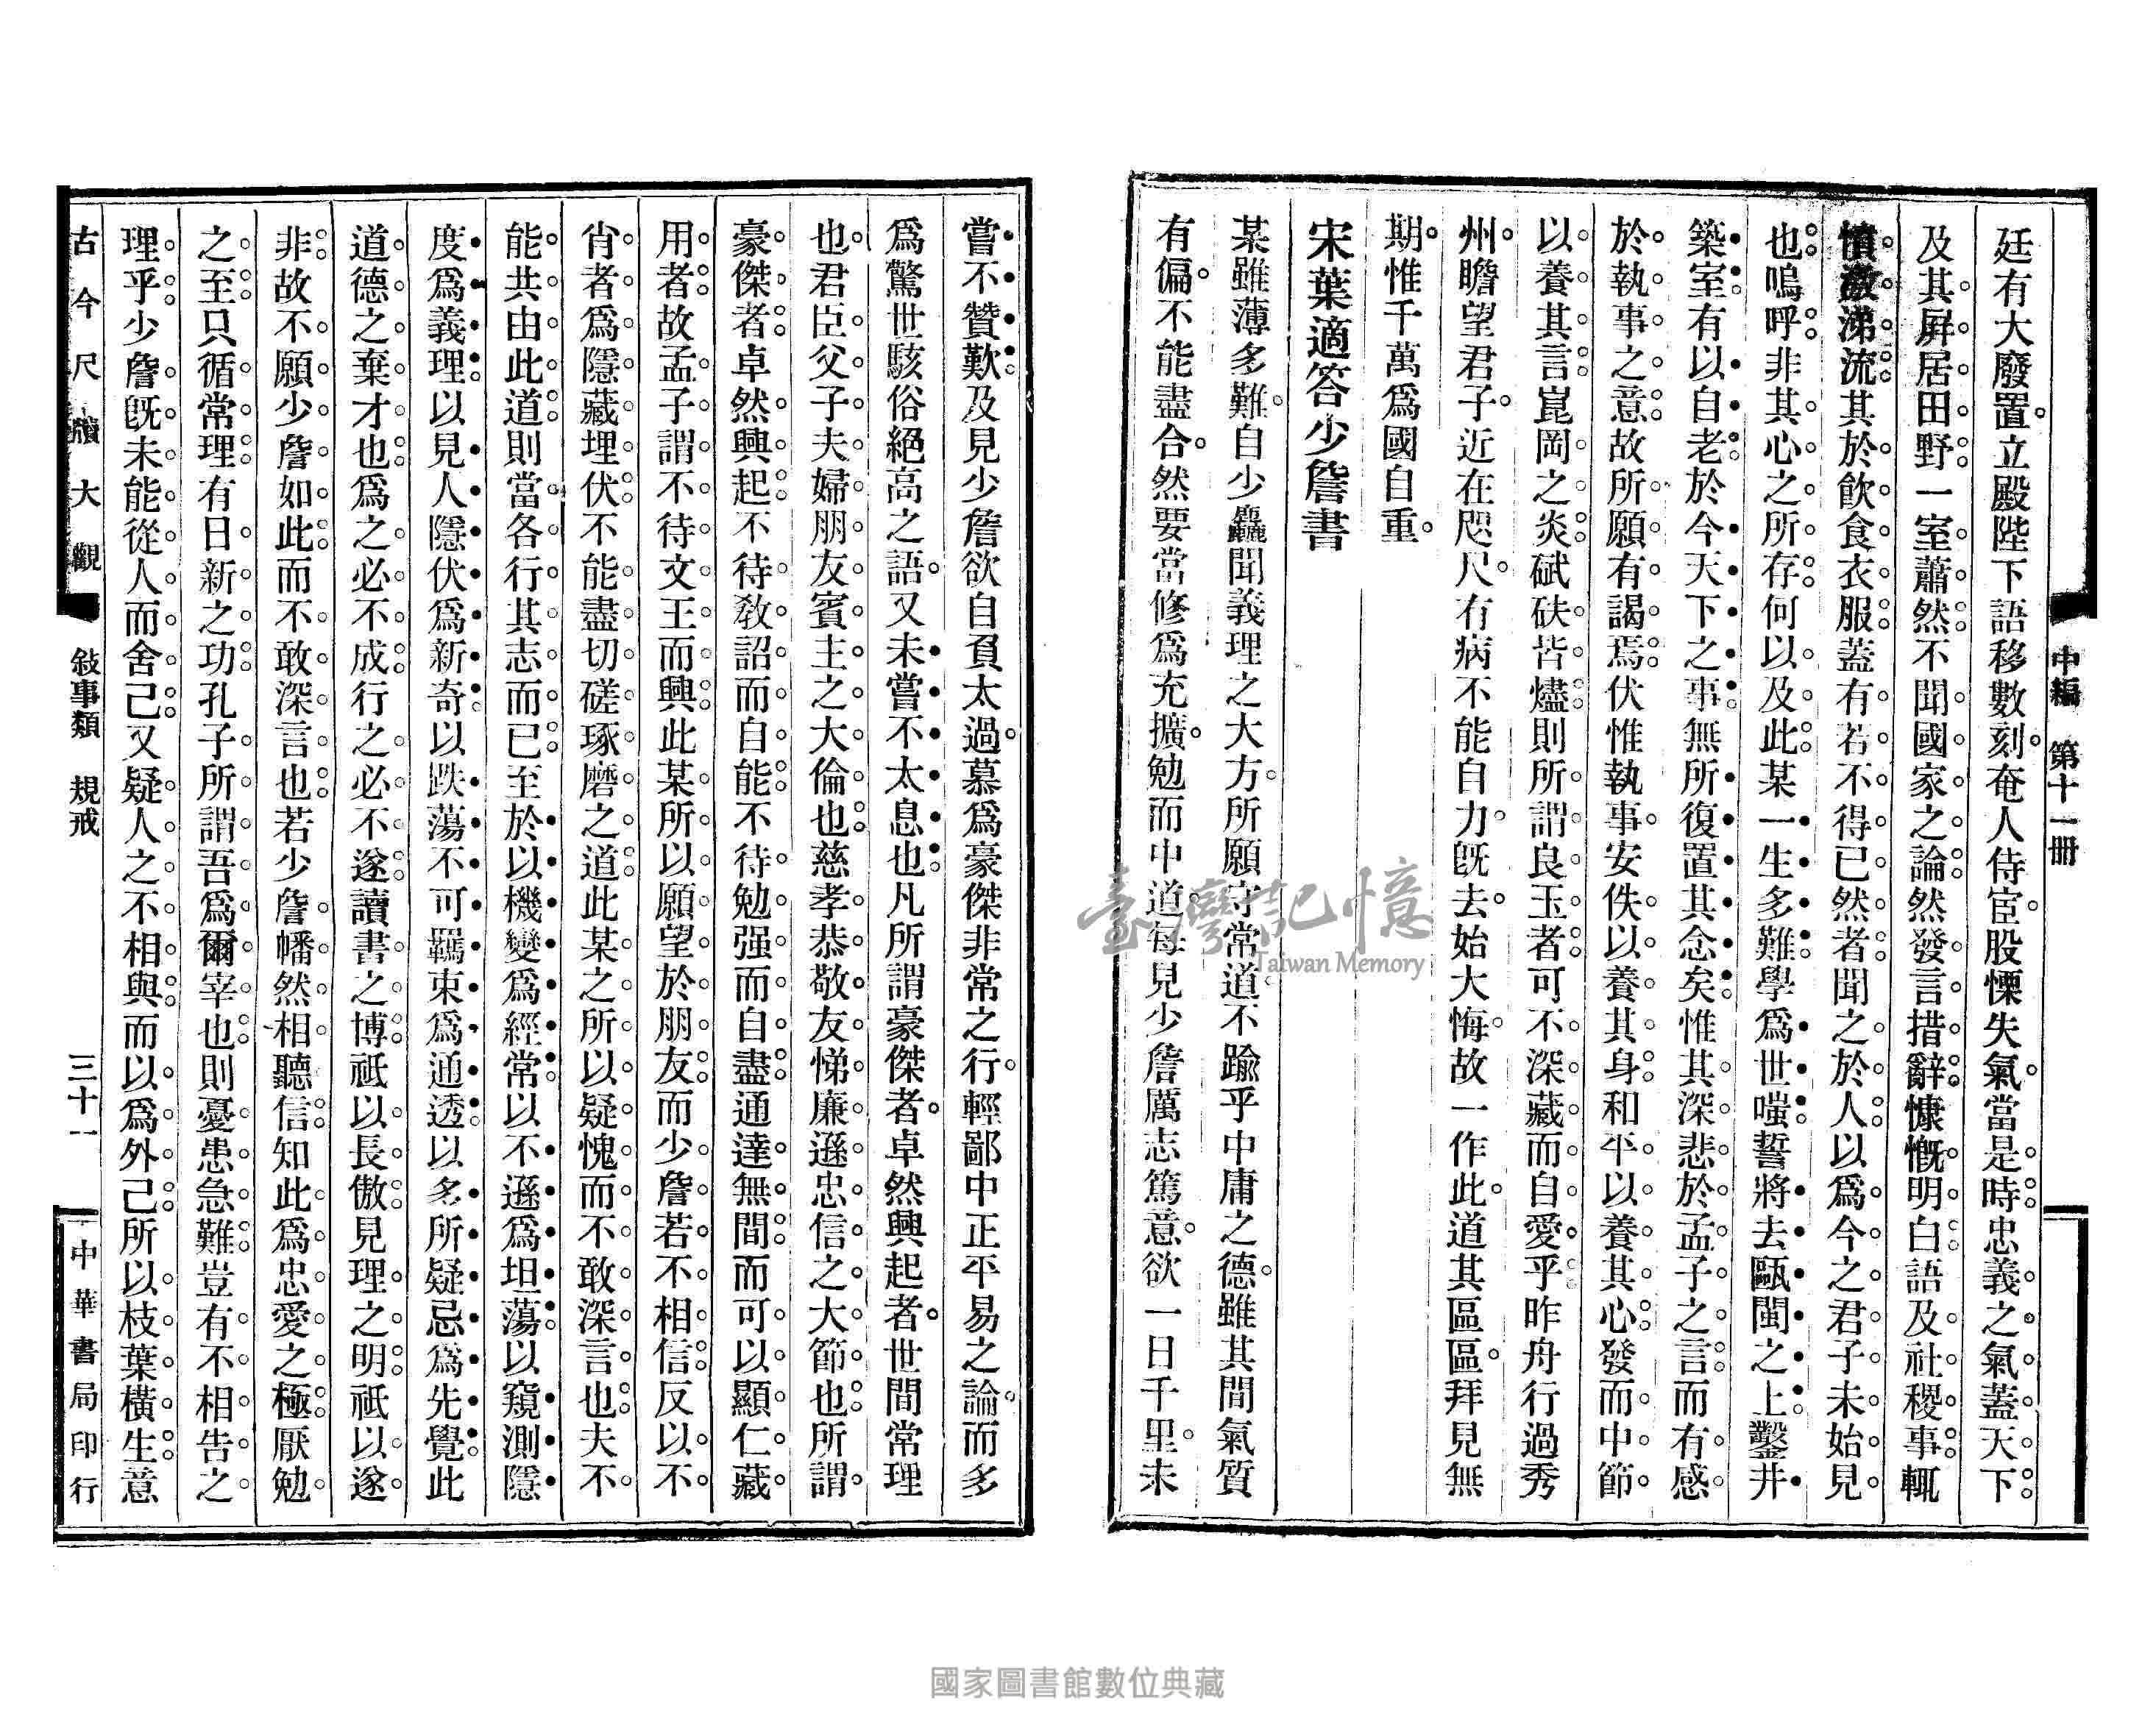 中編　第十一冊
廷有大廢置。立殿陛下語移數刻。奄人侍宦。股慄失氣。當是時。忠義之氣。蓋天下。
及其屏居田野。一室蕭然。不聞國家之論。然發言措辭。慷慨明白。語及社稷事。輒
憤激涕流。其於飲食衣服。蓋有若不得已然者。聞之於人。以爲今之君子。未始見
也。嗚呼。非其心之所存。何以及此。某一生多難。學爲世嗤。誓將去甌閩之上。鑿井
築室。有以自老。於今天下之事。無所復置其念矣。惟其深悲於孟子之言。而有感
於執事之意。故所願有謁焉。伏惟執事安佚以養其身。和平以養其心。發而中節
以養其言。崑岡之炎。碔砆皆燼。則所謂良玉者。可不深藏而自愛乎。昨舟行過秀
州。瞻望君子。近在咫尺。有病不能自力。旣去。始大悔。故一作此。道其區區。拜見無
期。惟千萬爲國自重。
宋葉適答少詹書
某雖薄多難。自少麤聞義理之大方。所願守常道。不踰乎中庸之德。雖其間氣質
有偏。不能盡合。然要當修爲充擴。勉而中道。每見少詹厲志篤意。欲一日千里。未
嘗不贊歎。及見少詹欲自負太過。慕爲豪傑非常之行。輕鄙中正平易之論。而多
爲驚世駭俗絕高之語。又未嘗不太息也。凡所謂豪傑者。卓然興起者。世間常理
也。君臣父子。夫婦朋友。賓主之大倫也。慈孝恭敬。友悌廉遜。忠信之大節也。所謂
豪傑者。卓然興起。不待敎詔而自能。不待勉强而自盡。通達無間。而可以顯仁藏
用者。故孟子謂不待文王而興。此某所以願望於朋友。而少詹若不相信。反以不
肖者爲隱藏埋伏。不能盡切磋琢磨之道。此某之所以疑愧而不敢深言也。夫不
能共由此道。則當各行其志而已。至於以機變爲經常。以不遜爲坦蕩。以窺測隱
度爲義理。以見人隱伏爲新奇。以跌蕩不可羈束爲通透。以多所疑忌爲先覺。此
道德之棄才也。爲之必不成。行之必不遂。讀書之博。祇以長傲。見理之明。祇以遂
非。故不願少詹如此。而不敢深言也。若少詹幡然相聽信。知此爲忠愛之極。厭勉
之至。只循常理。有日新之功。孔子所謂吾爲爾宰也。則憂患急難。豈有不相告之
理乎。少詹旣未能從人而舍己。又疑人之不相與而以爲外己。所以枝葉橫生。意
古今尺牘大觀　敍事類　規戒　三十一　中華書局印行
臺灣記憶
Taiwan Memory
國家圖書館數位典藏